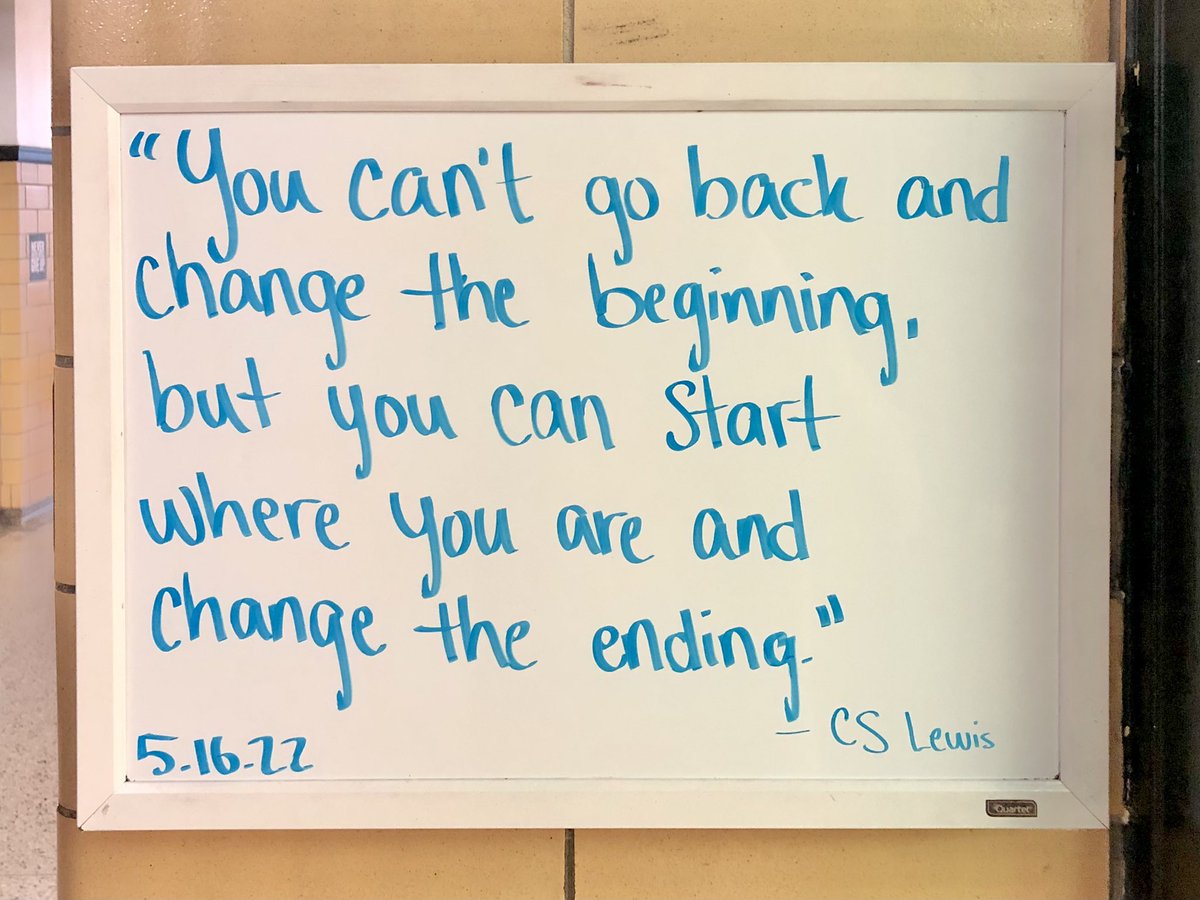 “You can't go back and
change the beginning,
but you can start
where you are and
change the ending."
— CS Lewis
5.16.22
Quartet